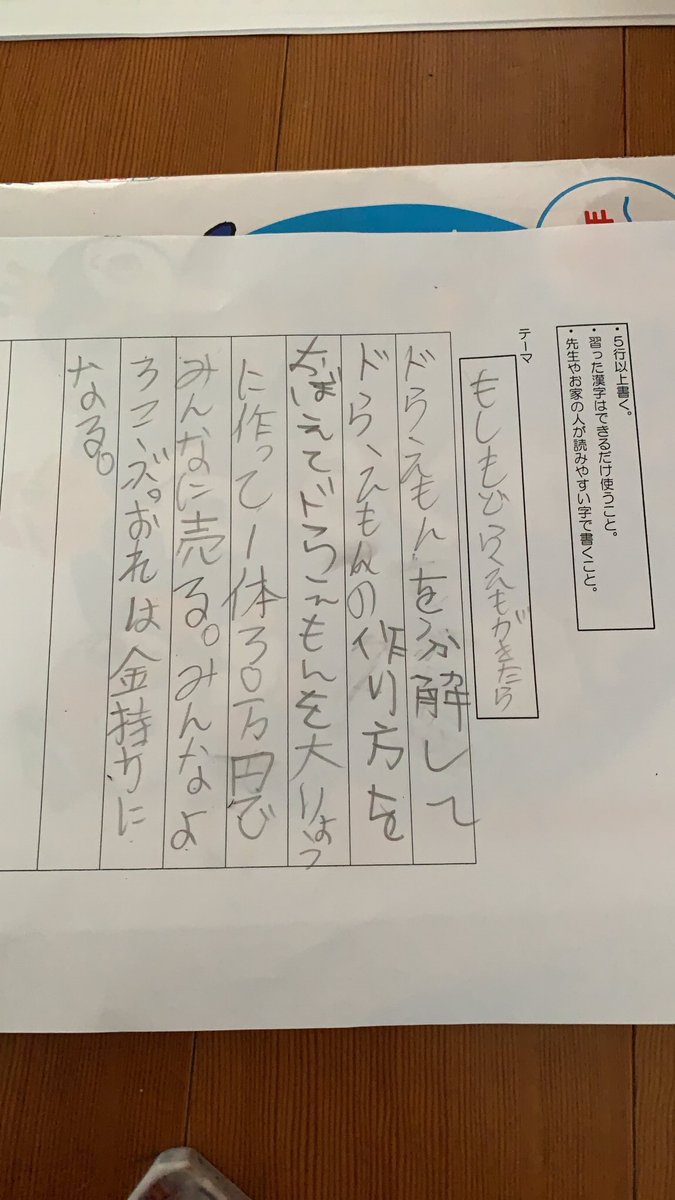 ・5行以上書く。
・習った漢字はできるだけ使うこと。
・先生やお家の人が読みやすい字で書くこと。
テーマ
もしもどらえもがきたら
ドらえもんを分解して
ドらえもんの作り方を
おぼえてドらえもんを大りょう
に作って1体30万円で
みんなに売る。みんなよ
ろこぶ。おれは金持ちに
なる。